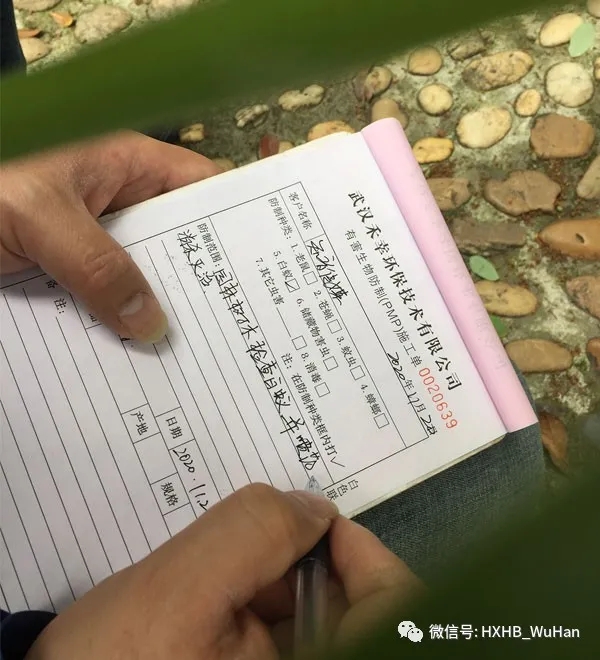 武汉禾幸环保技术有限公司
有害生物防制(PMP)施工单 0020639
2020年11月2日
客户名称
防制种类: 1. 老鼠□ 2. 苍蝇□ 3. 蚊虫□ 4. 蟑螂□
5. 白蚁☑ 6. 储藏物害虫□
7. 其它虫害 □ 8. 消毒□ 注: 在防制种类框内打✓
防制范围: 园林树木检查白蚁并喷药
白色联
日期
2020.11.2
产地
规格
备注:
微信号: HXHB_WuHan